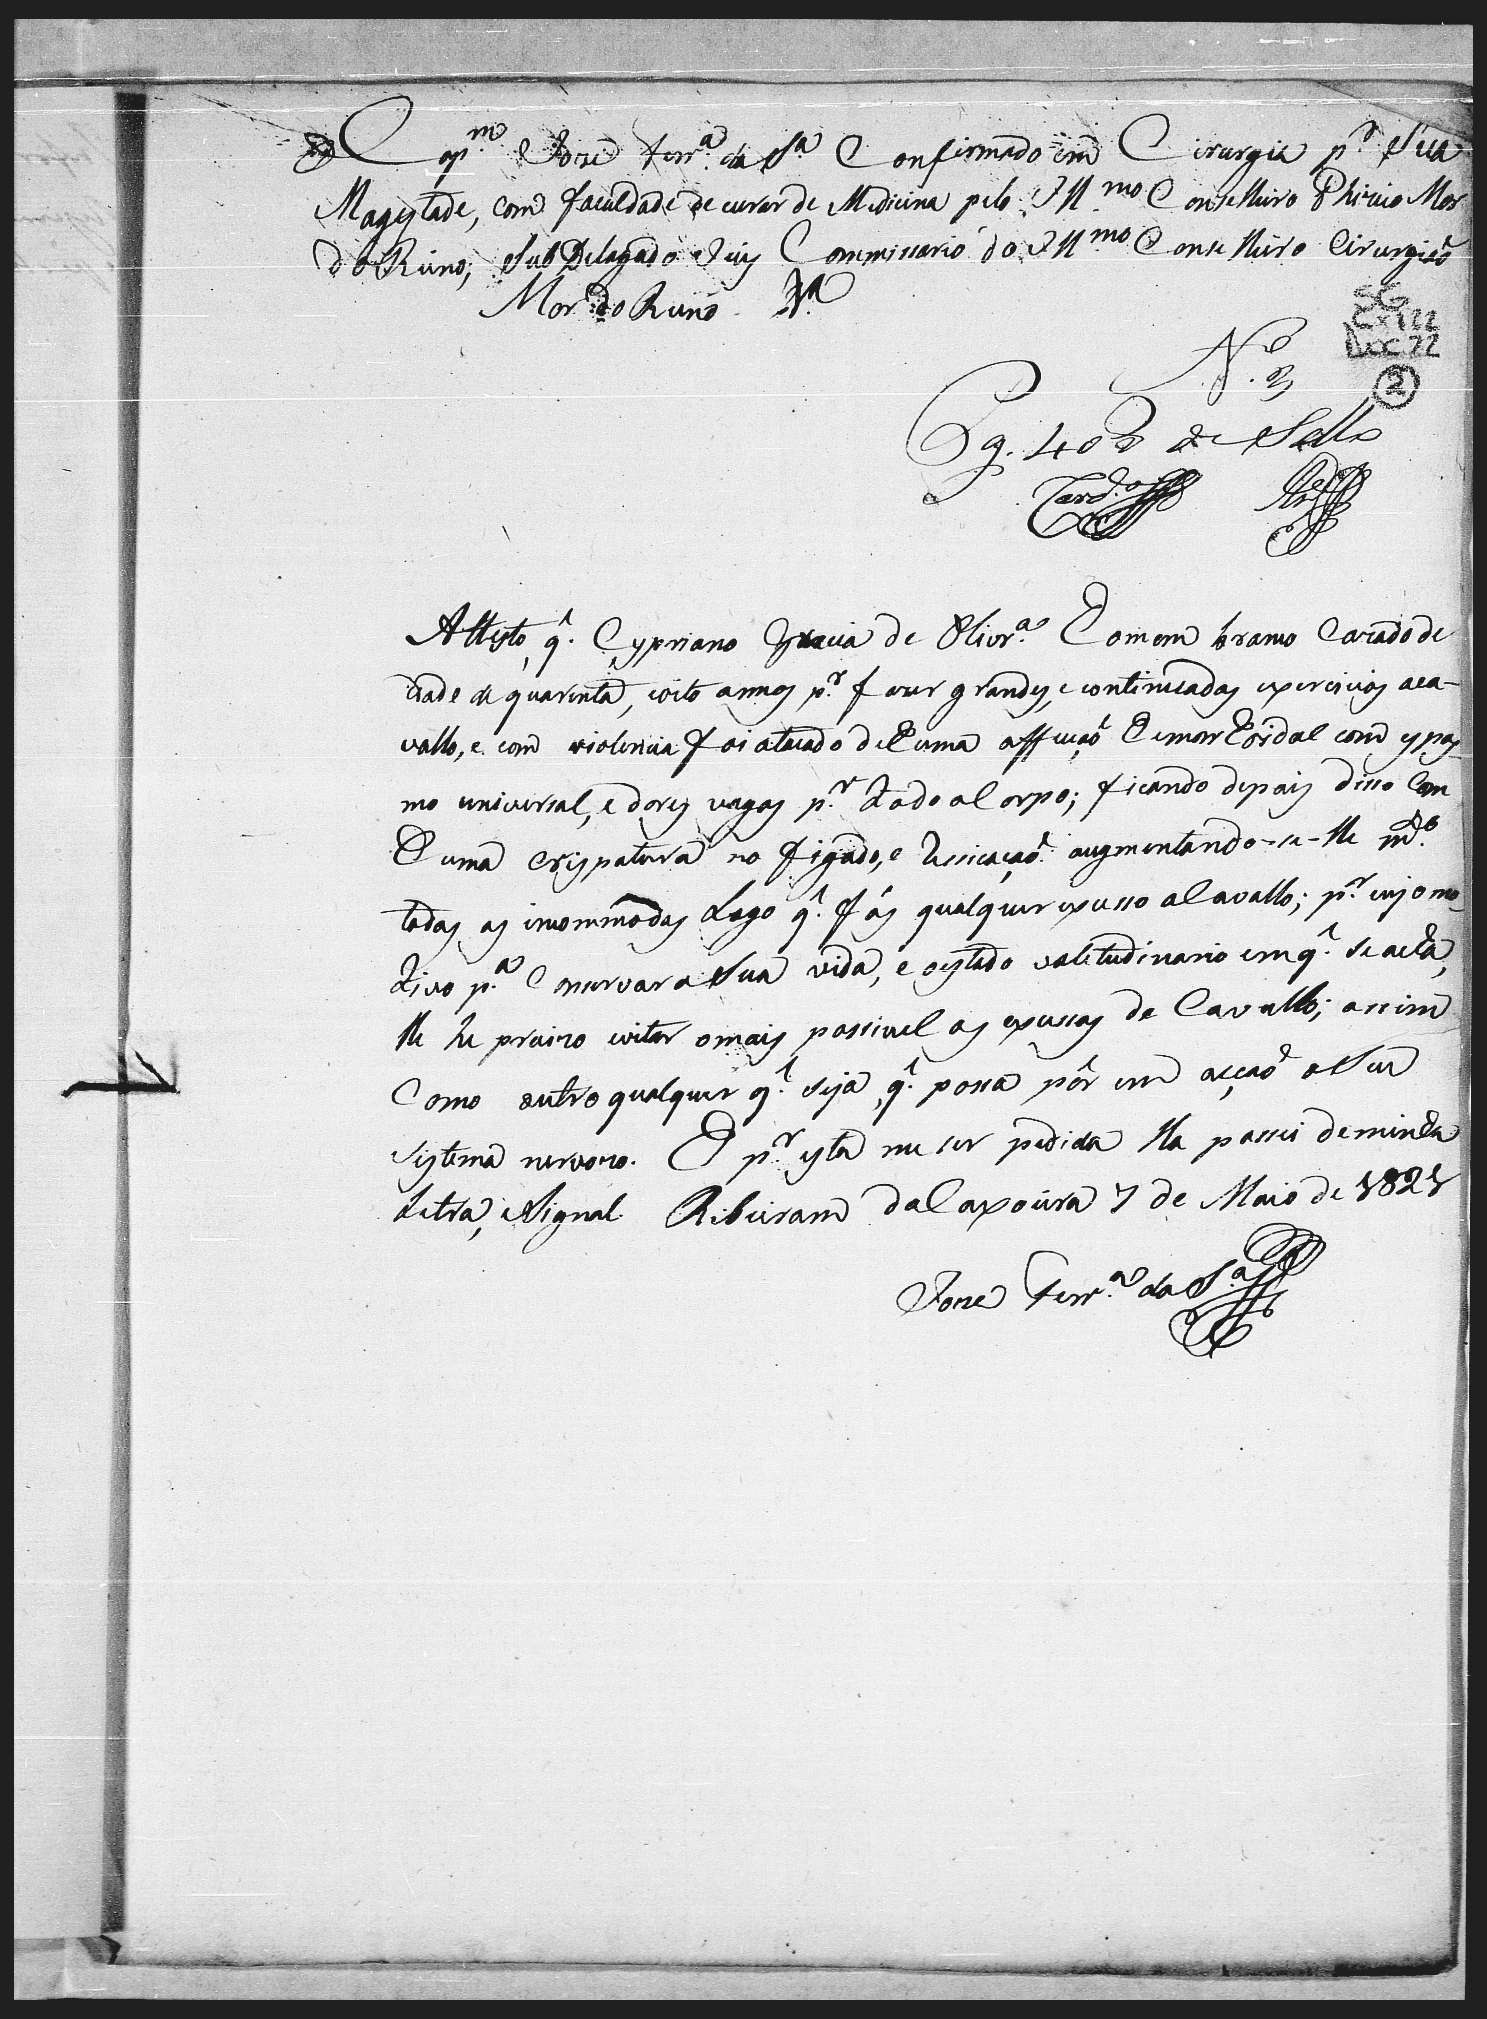 Cap.m Joze Ferr.a da S.a Confirmado em Cirurgia p.r Sua
Magestade, com faculdade de curar de Medicina pelo Ill.mo Conselheiro Phizico Mor
do Reino; SubDelegado e Juiz Commissario do Ill.mo Conselheiro Cirurgiaõ
Mor do Reino
SG
Cx 122
Doc 22
2
N.o 2
Pg. 40 r de Sello
Attesto, q. Cypriano Gracia de Olivr.a Homem branco Cazado de
idade de quarenta, e oito annos p.r fazer grandes, e continuados exercicios aca-
vallo, e com violencia foi atacado de huma affecçaõ hemorrhoidal com espas-
mo universal, e dores vagas p.r todo o Corpo; ficando depois disso Com
huma crispatura no figado, e Dessicaçaõ augmentando-se-lhe m.to
todos os incommodos Logo q. fás qualquer excesso aCavallo; p.r cujo mo-
tivo p.a Conservar a Sua vida, e o estado valetudinario em q. se acha,
lhe he precizo evitar o mais possivel os excessos de Cavallo; assim
Como outro qualquer q. seja, q. possa pôr em acçaõ o Seu
systema nervozo. E p.r esta me ser pedida lha passei de minha
Letra, e Signal Ribeiram da Capoeira 7 de Maio de 1821
Joze Ferr.a da S.a